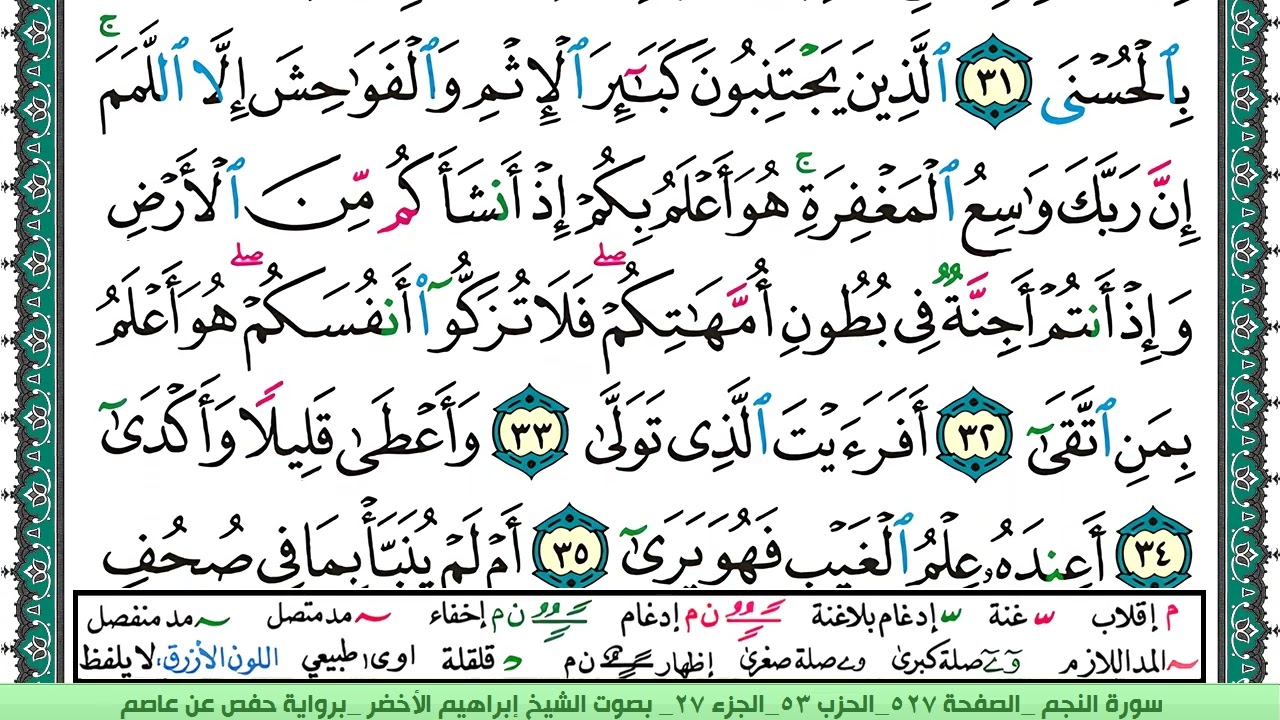 بِٱلْحُسْنَى ٣١ ٱلَّذِينَ يَجْتَنِبُونَ كَبَٰٓئِرَ ٱلْإِثْمِ وَٱلْفَوَٰحِشَ إِلَّا ٱللَّمَمَ ۚ
إِنَّ رَبَّكَ وَٰسِعُ ٱلْمَغْفِرَةِ ۚ هُوَ أَعْلَمُ بِكُمْ إِذْ أَنشَأَكُم مِّنَ ٱلْأَرْضِ
وَإِذْ أَنتُمْ أَجِنَّةٌ فِى بُطُونِ أُمَّهَٰتِكُمْ ۖ فَلَا تُزَكُّوٓا۟ أَنفُسَكُمْ ۖ هُوَ أَعْلَمُ
بِمَنِ ٱتَّقَىٰٓ ٣٢ أَفَرَءَيْتَ ٱلَّذِى تَوَلَّىٰ ٣٣ وَأَعْطَىٰ قَلِيلًا وَأَكْدَىٰٓ
٣٤ أَعِندَهُۥ عِلْمُ ٱلْغَيْبِ فَهُوَ يَرَىٰٓ ٣٥ أَمْ لَمْ يُنَبَّأْ بِمَا فِى صُحُفِ
م إقلاب غنة إدغام بلاغنة ن م إدغام ن م إخفاء مد متصل مد منفصل
المد اللازم صلة كبرى صلة صغرى إظهار ن م قلقلة اوى طبيعي اللون الأزرق: لا يلفظ
سورة النجم _الصفحة ٥٢٧_الحزب ٥٣_الجزء ٢٧_ بصوت الشيخ إبراهيم الأخضر _برواية حفص عن عاصم